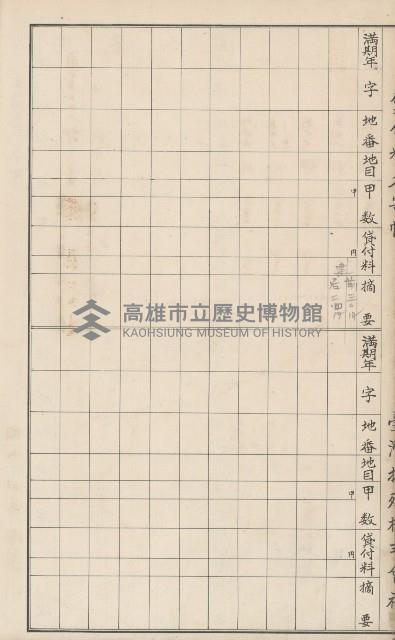 満期年 字 地番 地目 甲数 貸付料 摘要
甲
円
満期年 字 地番 地目 甲数 貸付料 摘要
甲
円
臺灣拓殖株式會社
高雄市立歷史博物館
KAOHSIUNG MUSEUM OF HISTORY